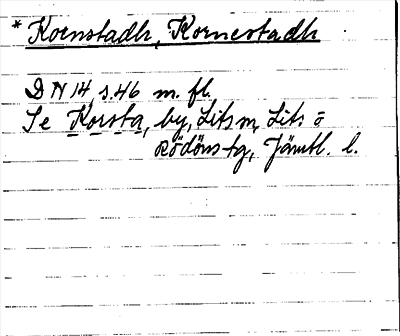 * Kornstadh, Kornestadh
D N 14, s. 46 m. fl.
Se Korsta, by, Lits sn, Lits o
Rödöns tg, Jämtl. l.